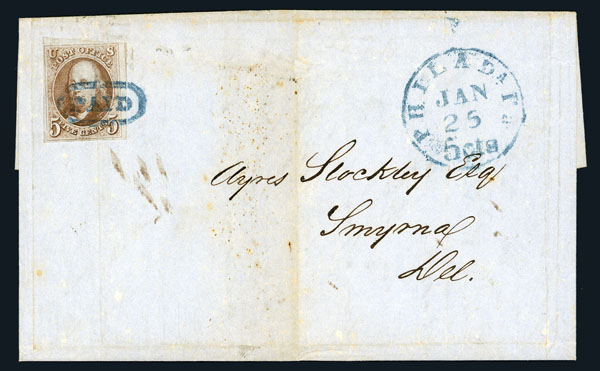 U S
POST OFFICE
PAID
5 FIVE CENTS 5
PHILADA Pa
JAN
25
5cts
Ayres Stockley Esq
Smyrna
Del.